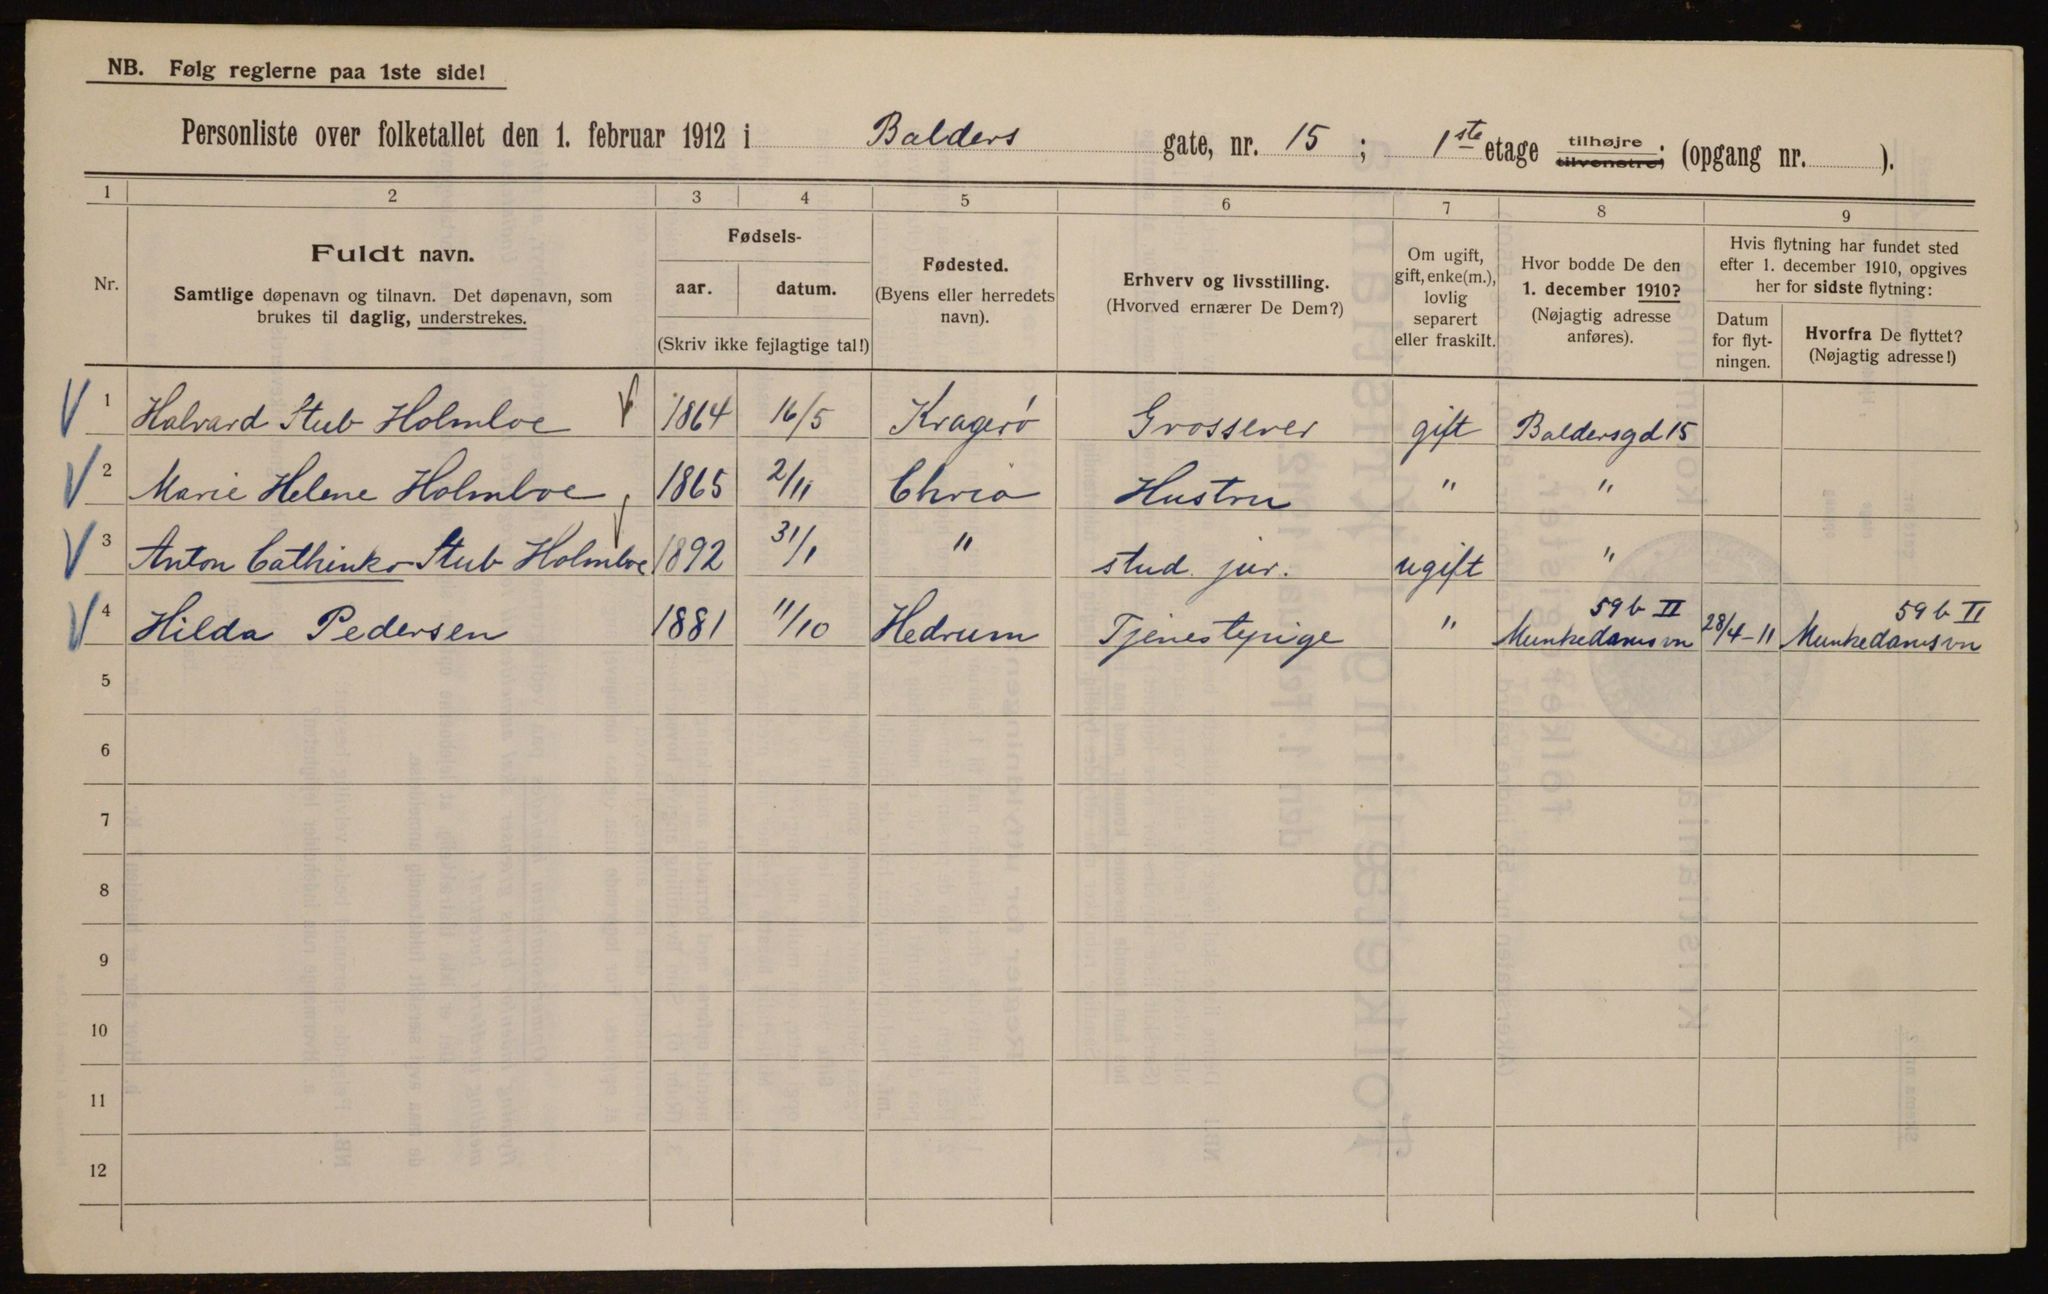 NB. Følg reglerne paa 1ste side!
Personliste over folketallet den 1. februar 1912 i Balders gate, nr. 15 ; 1ste etage tilhøjre tilvenstre; (opgang nr. ).
1 2 3 4 5 6 7 8 9
Nr.
Fuldt navn.
Samtlige døpenavn og tilnavn. Det døpenavn, som
brukes til daglig, understrekes.
Fødsels-
aar. datum.
(Skriv ikke fejlagtige tal!)
Fødested.
(Byens eller herredets
navn).
Erhverv og livsstilling.
(Hvorved ernærer De Dem?)
Om ugift,
gift, enke(m.),
lovlig
separert
eller fraskilt.
Hvor bodde De den
1. december 1910?
(Nøjagtig adresse
anføres).
Hvis flytning har fundet sted
efter 1. december 1910, opgives
her for sidste flytning:
Datum
for flyt-
ningen.
Hvorfra De flyttet?
(Nøjagtig adresse!)
1 Halvard Stub Holmboe 1864 16/5 Kragerø Grosserer gift Baldersgd 15
2 Marie Helene Holmboe 1865 2/11 Chria Hustru " "
3 Anton Cathinko Stub Holmboe 1892 31/1 " stud. jur. ugift "
4 Hilda Pedersen 1881 11/10 Hedrum Tjenestepige " 59 b II Munkedamsvn 28/4-11 59 b II Munkedamsvn
5
6
7
8
9
10
11
12